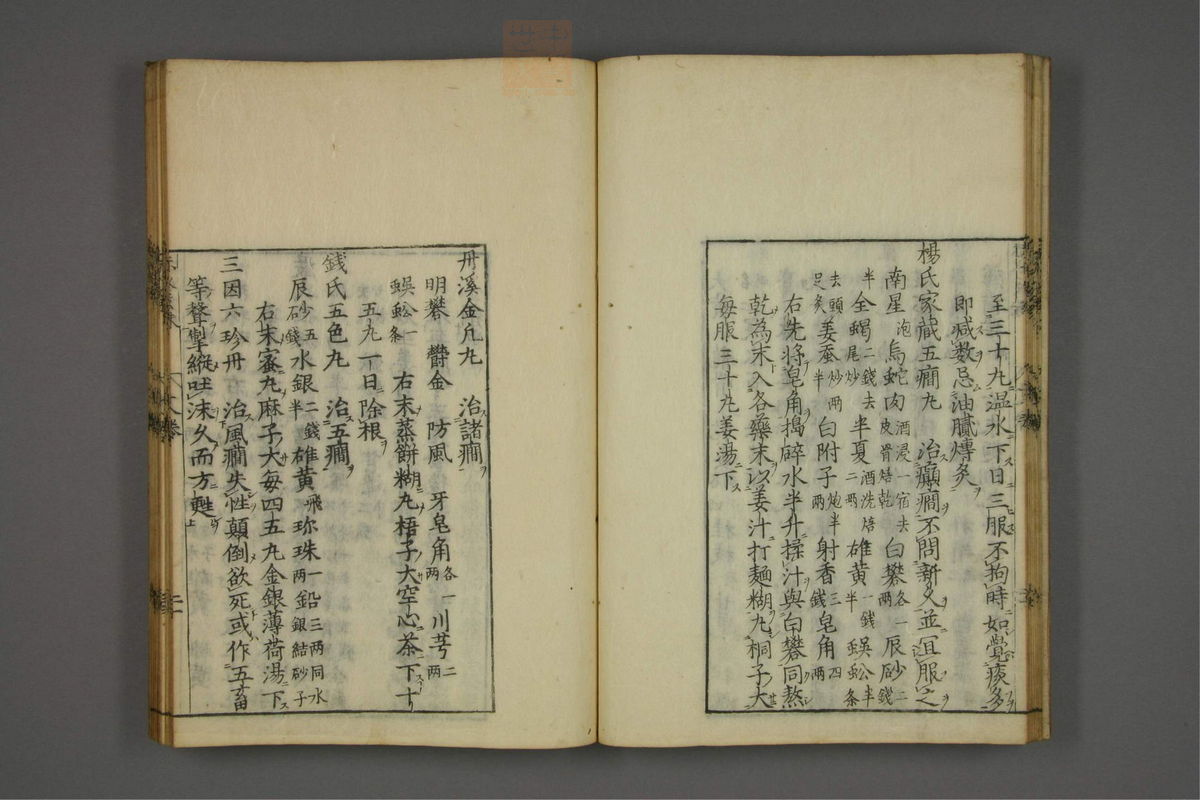 至三十九温水下日三服不拘時如覺痰多
即减数忌油膩煿炙
楊氏家藏五癇丸　治癲癇不問新久並宜服之
南星泡烏蛇肉酒浸一宿去皮骨焙乾白礬各一兩辰砂二錢
半全蝎二錢去尾炒半夏酒洗焙二兩雄黄一錢半蜈公半條
去頭足炙姜蚕炒兩半白附子炮半兩射香三錢皂角四兩
右先將皂角搗碎水半升揉汁與白礬同熬
乾為末入各藥末以姜汁打麵糊丸桐子大
每服三十丸姜湯下
丹溪金凡丸　治諸癇
明礬　欝金　防風　牙皂角各一兩川芎二兩
蜈蚣一條　右末蒸餅糊丸梧子大空心茶下十
五丸一日除根
錢氏五色丸　治五癇
辰砂五錢水銀二錢半雄黄飛珎珠一兩鉛三兩同水銀結砂子
右末蜜丸麻子大每四五丸金銀薄荷湯下
三因六珍丹　治風癇失性顛倒欲死或作五畜
等聲掣縱吐沫久而方甦